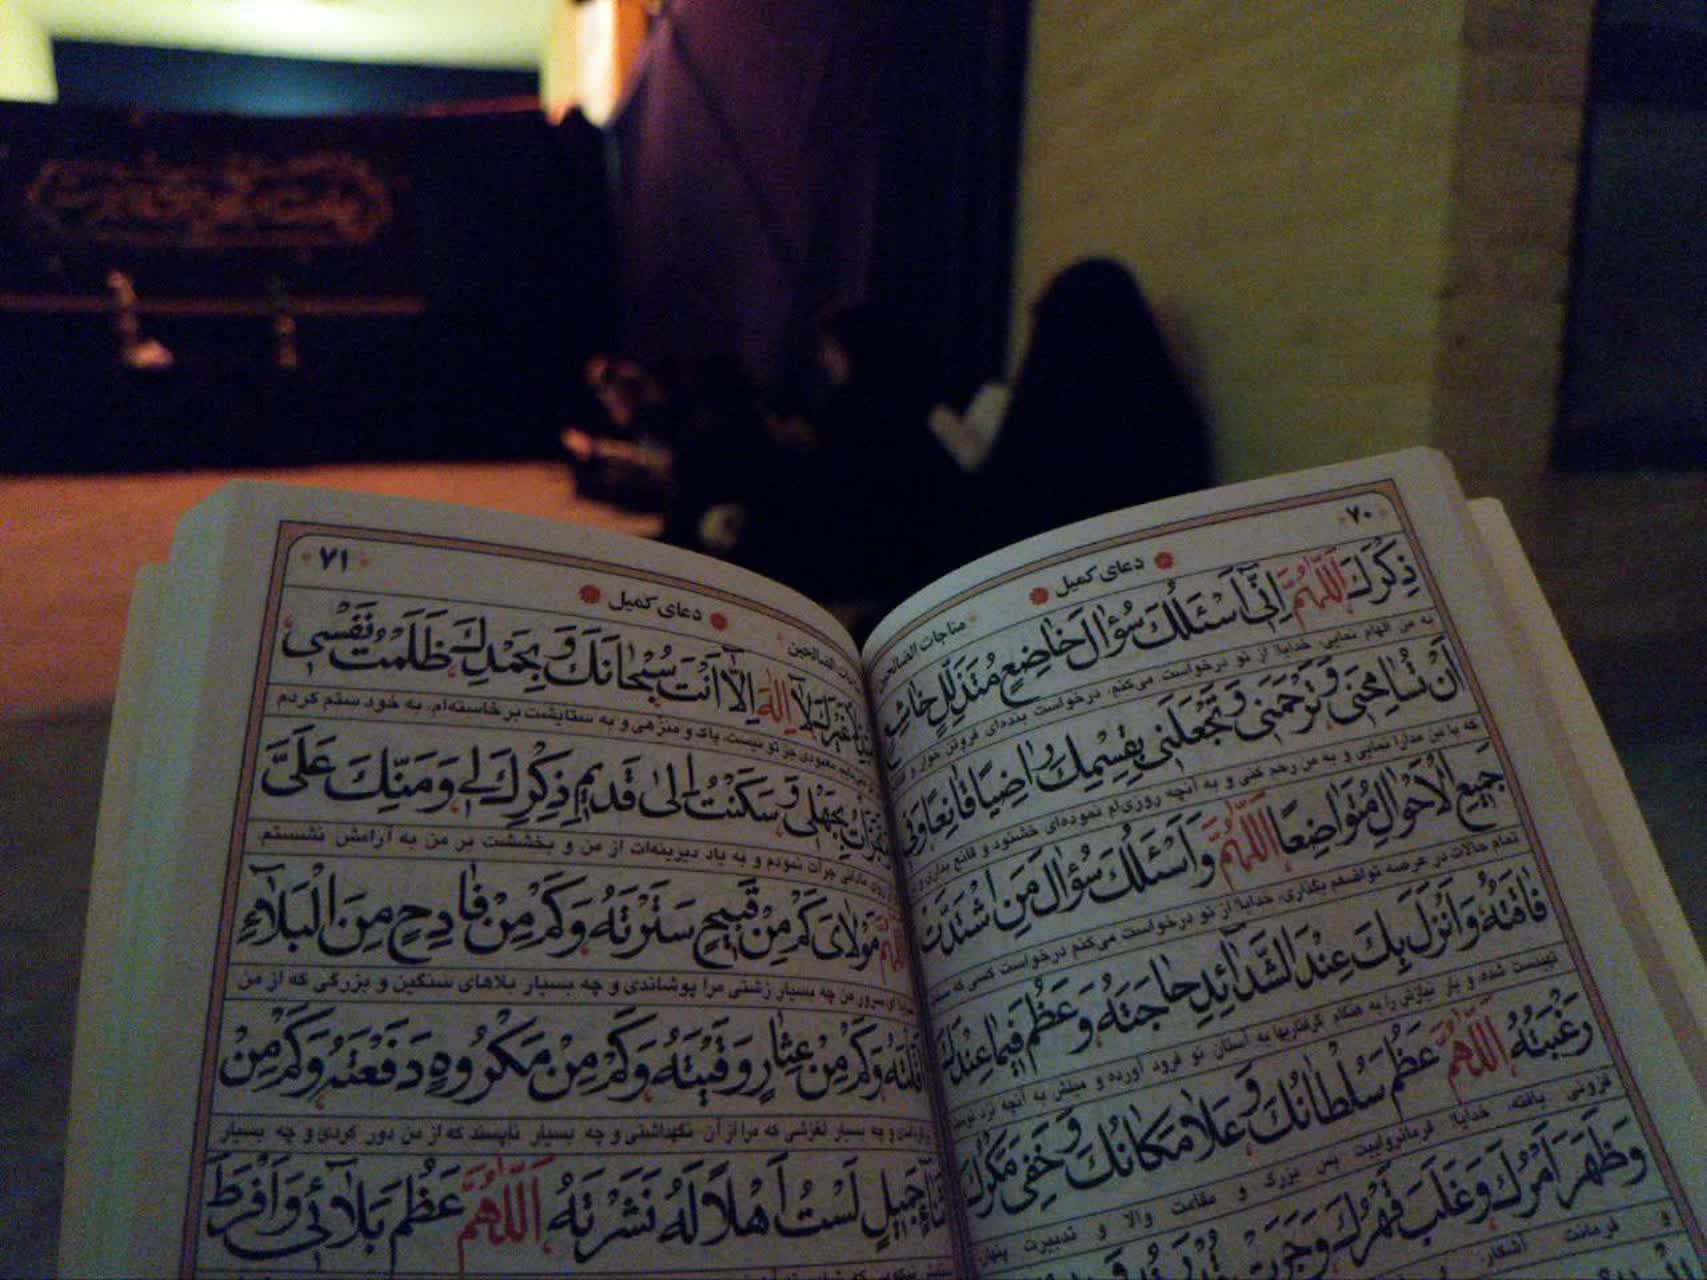 ۷۰
دعای کمیل
مناجات الصالحین
ذِكْرَكَ اَللّٰهُمَّ اِنّٰى اَسْئَلُكَ سُؤٰالَ خٰاضِعٍ مُتَذَلِّلٍ خٰاشِعٍ
به من الهام نمایی. خدایا از تو درخواست می‌کنم، درخواست بنده‌ای فروتن خوار و
اَنْ تُسٰامِحَنى وَتَرْحَمَنى وَتَجْعَلَنى بِقِسْمِكَ رٰاضِيًا قٰانِعًا وَفى
که با من مدارا نمایی و به من رحم کنی و به آنچه روزی‌ام نموده‌ای خشنود و قانع بداری و
جَميعِ الْاَحْوٰالِ مُتَوٰاضِعًا اَللّٰهُمَّ وَاَسْئَلُكَ سُؤٰالَ مَنِ اشْتَدَّتْ
تمام حالات در عرصه تواضعم بگذاری. خدایا از تو درخواست می‌کنم درخواست کسی که سخت
فٰاقَتُهُ وَاَنْزَلَ بِكَ عِنْدَ الشَّدٰائِدِ حٰاجَتَهُ وَعَظُمَ فيمٰا عِنْدَكَ
تهیدست شده و بار نیازش را به هنگام گرفتاریها به آستان تو فرود آورده و میلش به آنچه نزد توست
رَغْبَتُهُ اَللّٰهُمَّ عَظُمَ سُلْطٰانُكَ وَعَلٰا مَكٰانُكَ وَخَفِىَ مَكْرُكَ
فزونی یافته. خدایا فرمانروایت بس بزرگ و مقامت والا و تدبیرت پنهان
وَظَهَرَ اَمْرُكَ وَغَلَبَ قَهْرُكَ وَجَرَتْ
و فرمانت آشکار
۷۱
دعای کمیل
الصالحین
غَيْرُكَ لٰا اِلٰهَ اِلّٰا اَنْتَ سُبْحٰانَكَ وَبِحَمْدِكَ ظَلَمْتُ نَفْسى
معبودی جز تو نیست، پاک و منزّهی و به ستایشت برخاسته‌ام. به خود ستم کردم
بِجَهْلى وَسَكَنْتُ اِلىٰ قَديمِ ذِكْرِكَ لى وَمَنِّكَ عَلَىَّ
نادانی جرأت نمودم و به یاد دیرینه‌ات از من و بخششت بر من به آرامش نشستم
اَللّٰهُمَّ مَوْلٰاىَ كَمْ مِنْ قَبيحٍ سَتَرْتَهُ وَكَمْ مِنْ فٰادِحٍ مِنَ الْبَلٰاءِ
ای سرور من چه بسیار زشتی مرا پوشاندی و چه بسیار بلاهای سنگین و بزرگی که از من
اَقَلْتَهُ وَكَمْ مِنْ عِثٰارٍ وَقَيْتَهُ وَكَمْ مِنْ مَكْرُوهٍ دَفَعْتَهُ وَكَمْ مِنْ
و چه بسیار لغزشی که مرا از آن نگهداشتی و چه بسیار ناپسند که از من دور کردی و چه بسیار
ثَنٰاءٍ جَميلٍ لَسْتُ اَهْلًا لَهُ نَشَرْتَهُ اَللّٰهُمَّ عَظُمَ بَلٰائى وَاَفْرَطَ